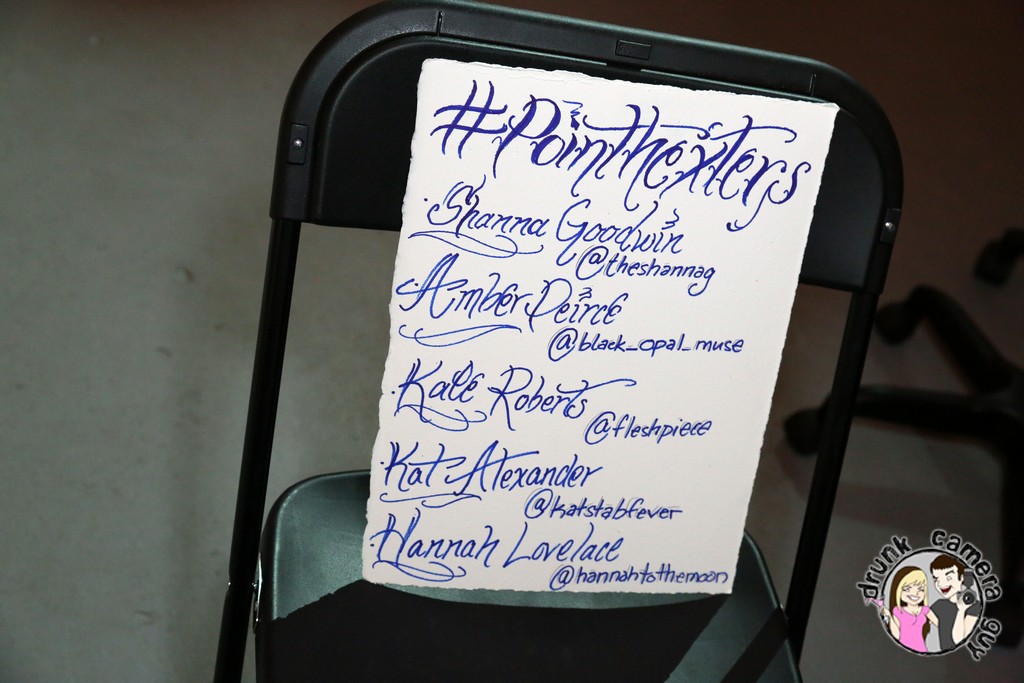 #Pointhexters
Shanna Goodwin
@theshannag
Amber Deirce
@black_opal_muse
Kale Roberts
@fleshpiece
Kat Alexander
@katstabfever
Hannah Lovelace
@hannahtothemoon
drunk camera guy